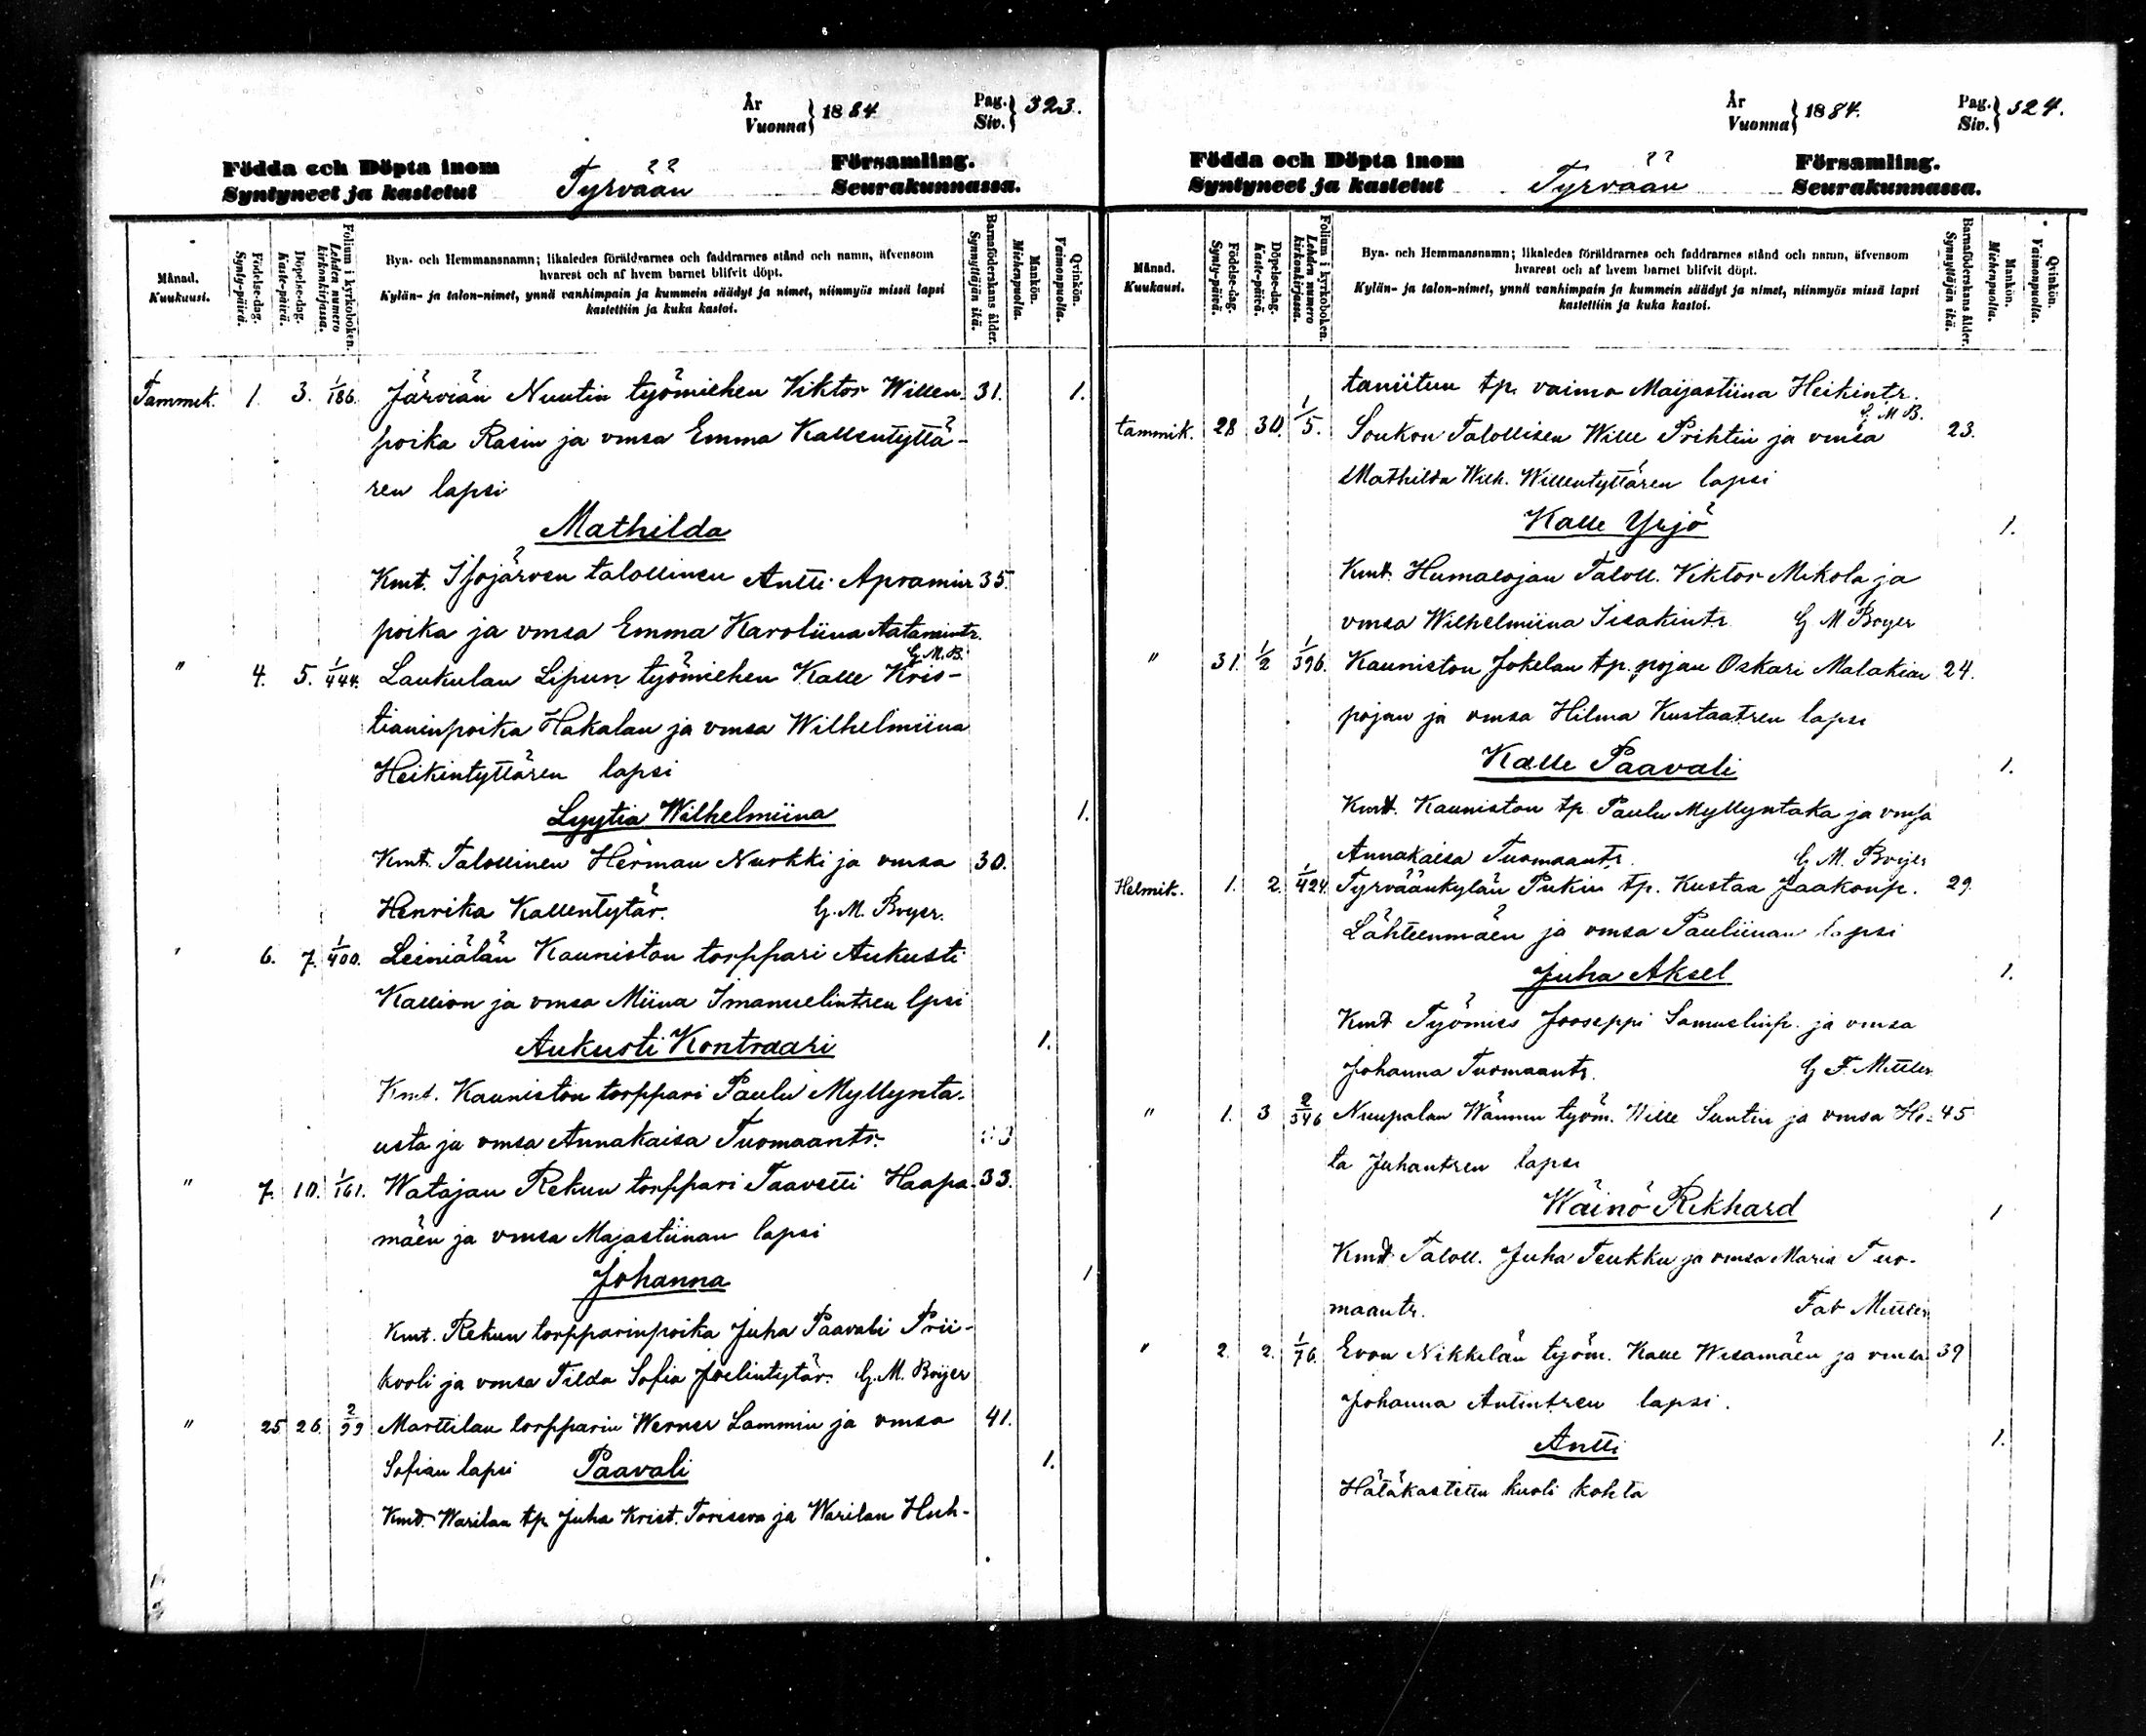 År
Vuonna } 1884. Pag.
Siv. } 323.
Födda och Döpta inom
Syntyneet ja kastetut Tyrvään Församling.
Seurakunnassa.
Månad.
Kuukausi.
Födelse-dag.
Synty-päivä.
Döpelse-dag.
Kaste-päivä.
Folium i kyrkoboken.
Lehden numero kirkonkirjassa.
Byn- och Hemmansnamn; likaledes föräldrarnes och faddrarnes stånd och namn, äfvensom
hvarest och af hvem barnet blifvit döpt.
Kylän- ja talon-nimet, ynnä vanhimpain ja kummein säädyt ja nimet, niinmyös missä lapsi
kastettiin ja kuka kastoi.
Barnaföderskans ålder.
Synnyttäjän ikä.
Mankön.
Miehenpuolia.
Qvinkön.
Vaimonpuolia.
Tammik. 1. 3. 1/186. Järviän Nuutin työmiehen Viktor Willen 31. 1.
poika Rasin ja vmsa Emma Kallentyttä-
ren lapsi
Mathilda
Kmt. Isojärven talollinen Antti Apramin 35.
poika ja vmsa Emma Karoliina Aatamintr.
G. M. B.
" 4. 5. 1/444. Laukulan Lipun työmiehen Kalle Kris-
tianinpoika Hakalan ja vmsa Wilhelmiina
Heikintyttären lapsi
Lyytia Wilhelmiina 1.
Kmt. Talollinen Herman Nurkki ja vmsa 30.
Henrika Kallentytär. G. M. Boijer.
" 6. 7. 1/400. Leiniälän Kauniston torppari Aukusti
Kallion ja vmsa Miina Imanuelintren lpsi
Aukusti Kontraari 1.
Kmt. Kauniston torppari Paulu Myllynta-
usta ja vmsa Annakaisa Tuomaantr.
" 7. 10. 1/161. Watajan Rekun torppari Taavetti Haapa- 33.
mäen ja vmsa Majastiinan lapsi
Johanna 1
Kmt. Rekun torpparinpoika Juha Paavali Prii-
kooli ja vmsa Tilda Sofia Joelintytär. G. M. Boijer
" 25 26. 2/99 Marttilan torpparin Werner Lammin ja vmsa 41.
Sofian lapsi Paavali 1.
Kmt. Warilan tp. Juha Krist. Torissva ja Warilan Huh-
År
Vuonna } 1884. Pag.
Siv. } 324.
Födda och Döpta inom
Syntyneet ja kastetut Tyrvään Församling.
Seurakunnassa.
Månad.
Kuukausi.
Födelse-dag.
Synty-päivä.
Döpelse-dag.
Kaste-päivä.
Folium i kyrkoboken.
Lehden numero kirkonkirjassa.
Byn- och Hemmansnamn; likaledes föräldrarnes och faddrarnes stånd och namn, äfvensom
hvarest och af hvem barnet blifvit döpt.
Kylän- ja talon-nimet, ynnä vanhimpain ja kummein säädyt ja nimet, niinmyös missä lapsi
kastettiin ja kuka kastoi.
Barnaföderskans ålder.
Synnyttäjän ikä.
Mankön.
Miehenpuolia.
Qvinkön.
Vaimonpuolia.
taniitun tp. vaimo Maijastiina Heikintr.
G. M B.
tammik. 28 30. 1/5. Soukon Talollisen Wille Prihtin ja vmsa 23.
Mathilda Wilh. Willentyttären lapsi
Kalle Yrjö 1.
Kmt. Humalojan Taloll. Viktor Mikola ja
vmsa Wilhelmiina Iisakintr. G M Boijer
" 31. 1/2 1/396. Kauniston Jokelan tp. pojan Oskari Malakian 24.
pojan ja vmsa Hilma Kustaatren lapsi
Kalle Paavali 1.
Kmt. Kauniston tp Paulu Myllyntaka ja vmsa
Annakaisa Tuomaantr. G M. Boijer
Helmik. 1. 2. 1/424. Tyrväänkylän Pukin tp. Kustaa Jaakonp. 29.
Lähteenmäen ja vmsa Pauliinan lapsi
Juha Aksel 1.
Kmt Työmies Jooseppi Samuelinp. ja vmsa
Johanna Tuomaantr. G F. Mittler
" 1. 3 2/346 Nuupalan Wännin työm. Wille Suntin ja vmsa He- 45
ta Juhantren lapsi
Wäinö Rikhard 1
Kmt Taloll. Juha Teukku ja vmsa Maria Tuo-
maantr. Fab Mittler
" 2. 2. 1/76. Evon Nikkilän työm. Kalle Wesamäen ja vmsa 39
Johanna Antintren lapsi.
Antti 1.
Hätäkastettu kuoli kohta